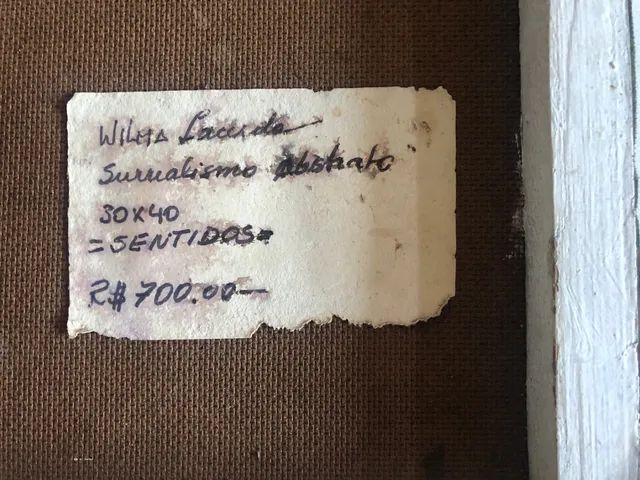 WILMA Lacerda
Surrealismo Abstrato
30x40
=SENTIDOS=
R$ 700.00—